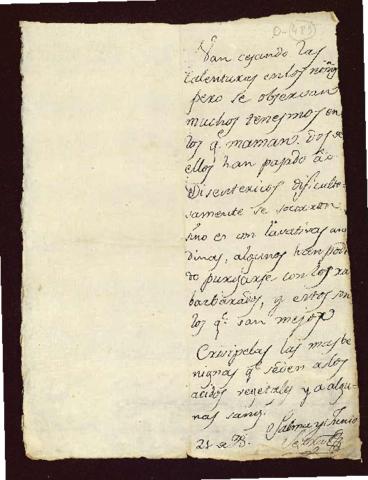 D-(485)
Van cejando las
Calenturas en los niños
pero se observan
muchos tenesmos en
los q.e maman. Dos de
ellos han pasado a
Disentericos dificulto-
samente se socorren
sino es con lavativas ano
dinas, algunos han podi
do purgarse con los ra
barbarados, y estos son
los q.e van mejor
Erisipelas las mas be
nignas q.e seden a los
acidos vegetales y a algu-
nas sang.
Palma y Junio
21 de 93.